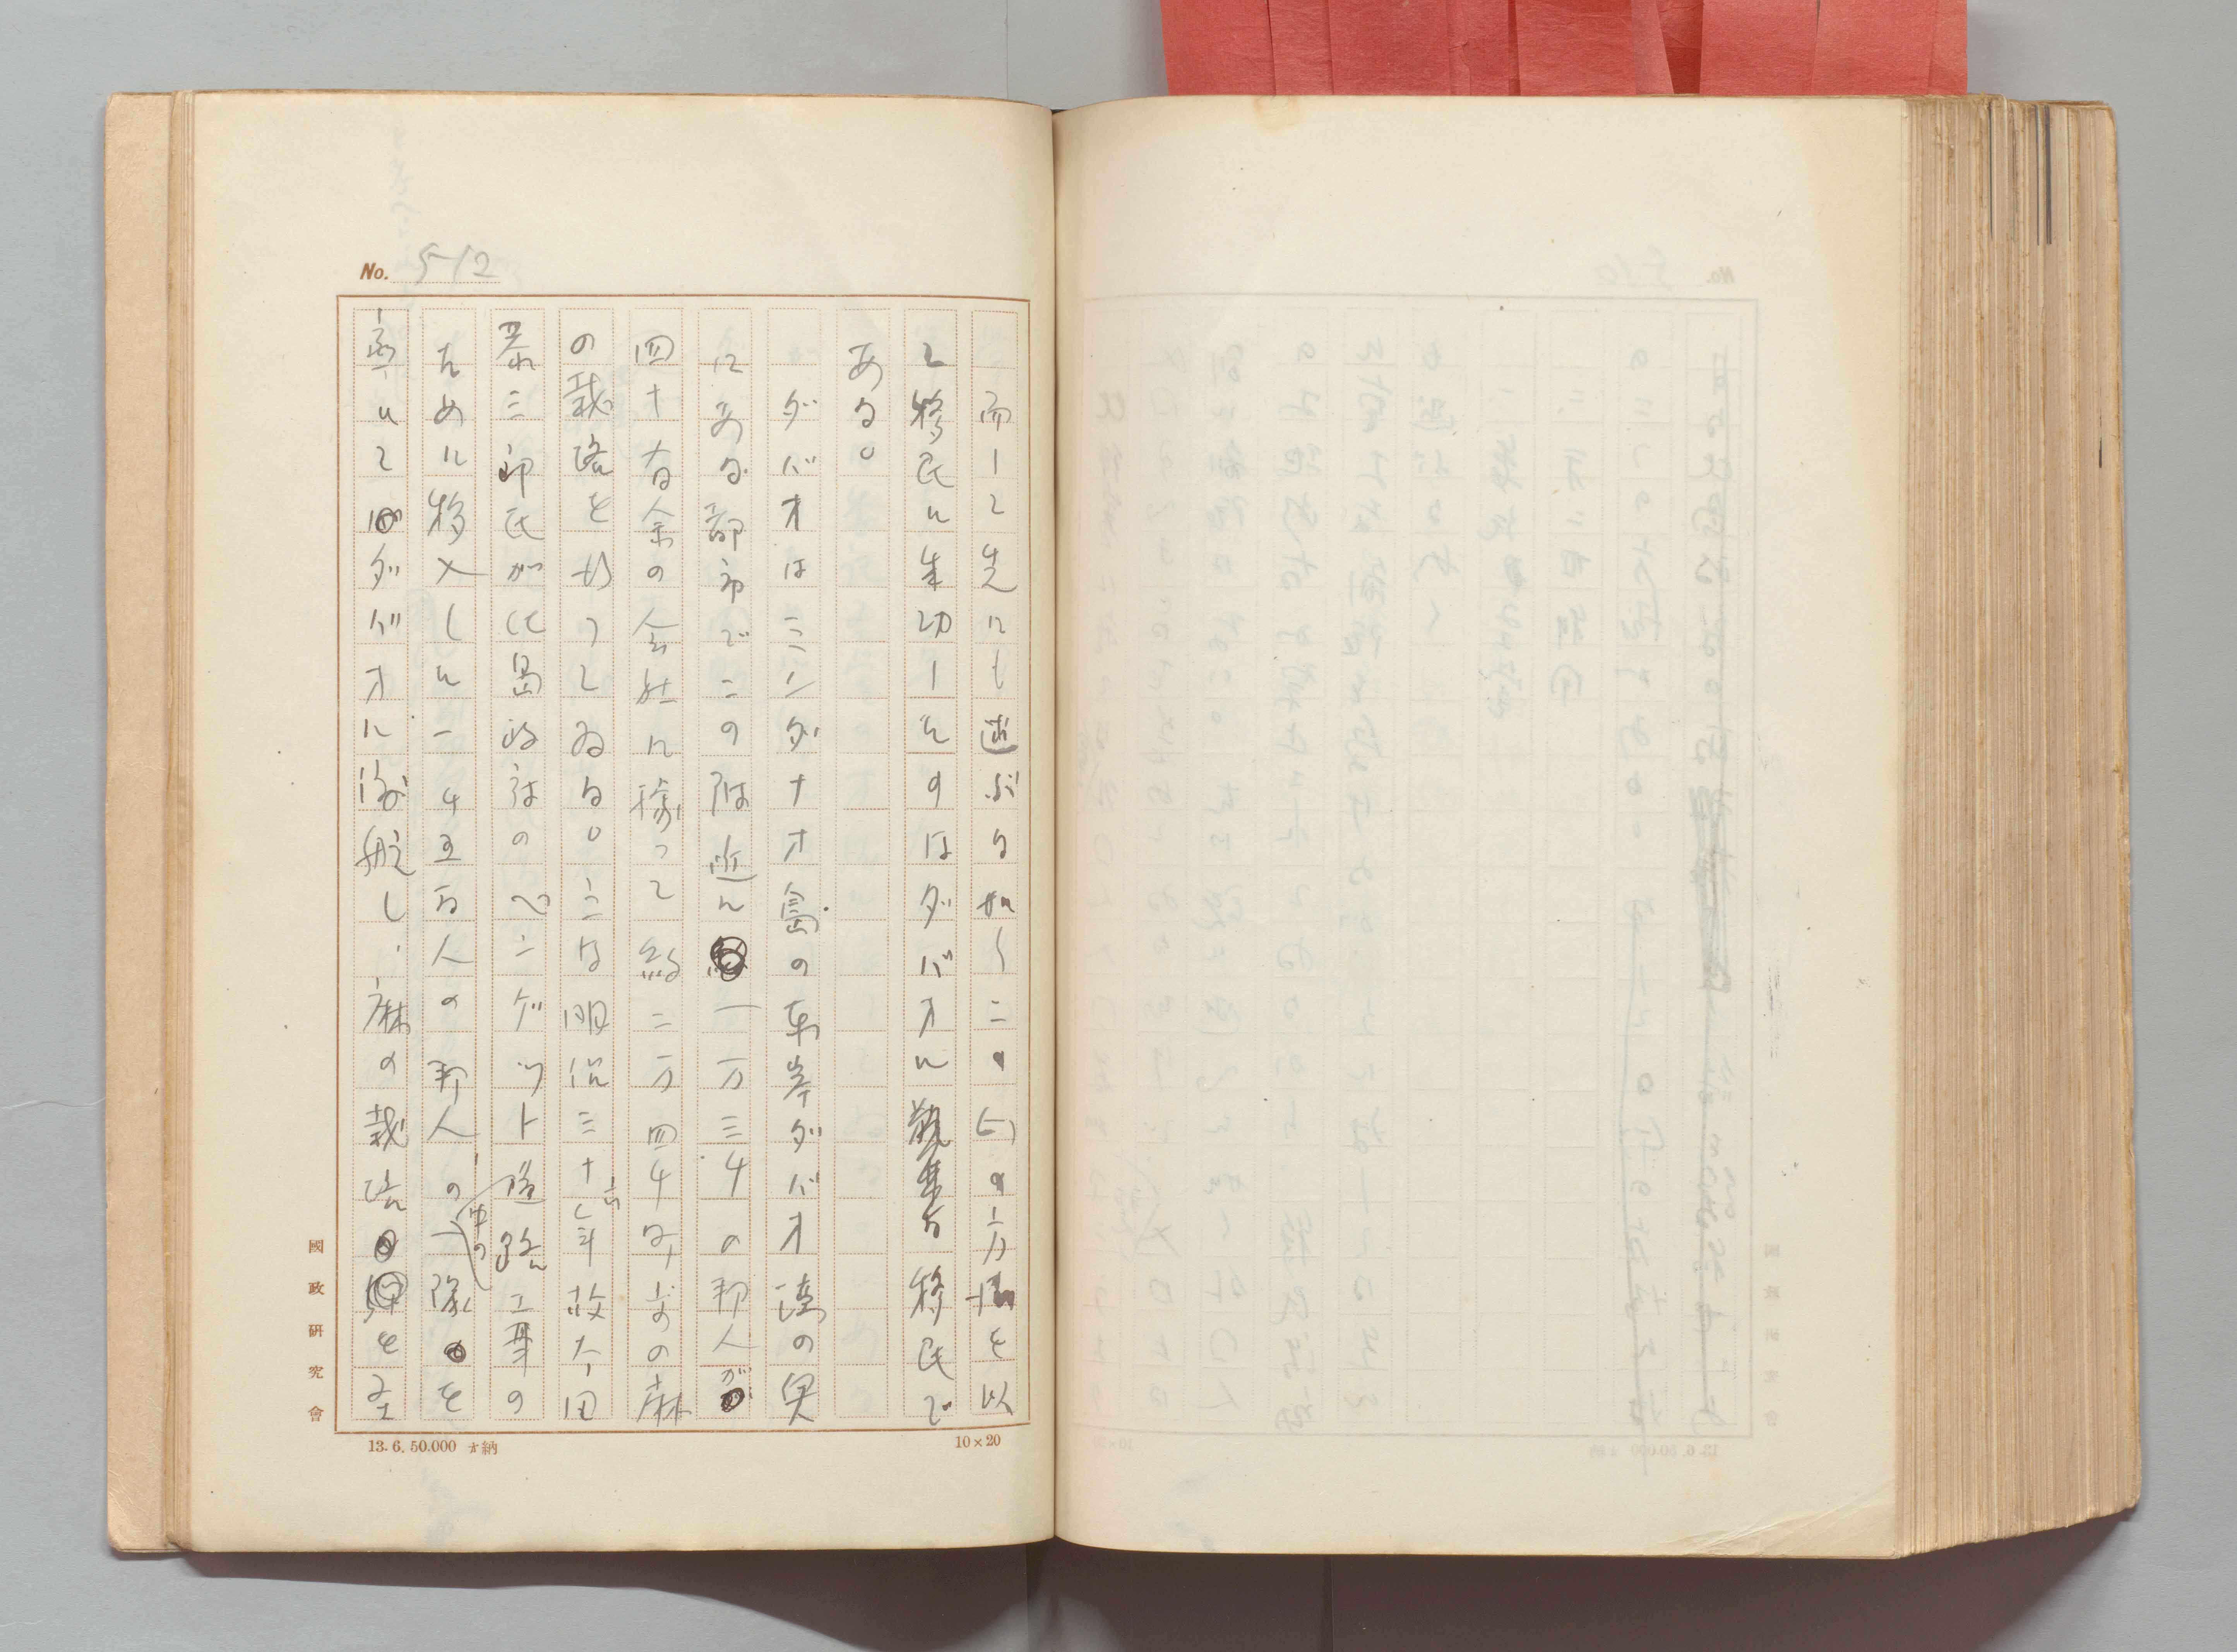 No. 5-12
而して先にも述ぶる如くこの の方 を以
て移民に成功したのはダバオに 移民で
ある。
ダバオはミンダナオ島の東岸ダバオ湾の奥
にある都市でこの附近に一万三千の邦人が
四十有余の会社に據って約二万四千町歩の麻
の栽培を行ってゐる。之は明治三十六年故太田
恭三郎氏が比島政府のベンゲット道路工事の
ために移入した一千五百人の邦人の中の一隊を
率いてダバオに渡航し、麻の栽培を企
國政研究會
13.6.50.000 納
10×20